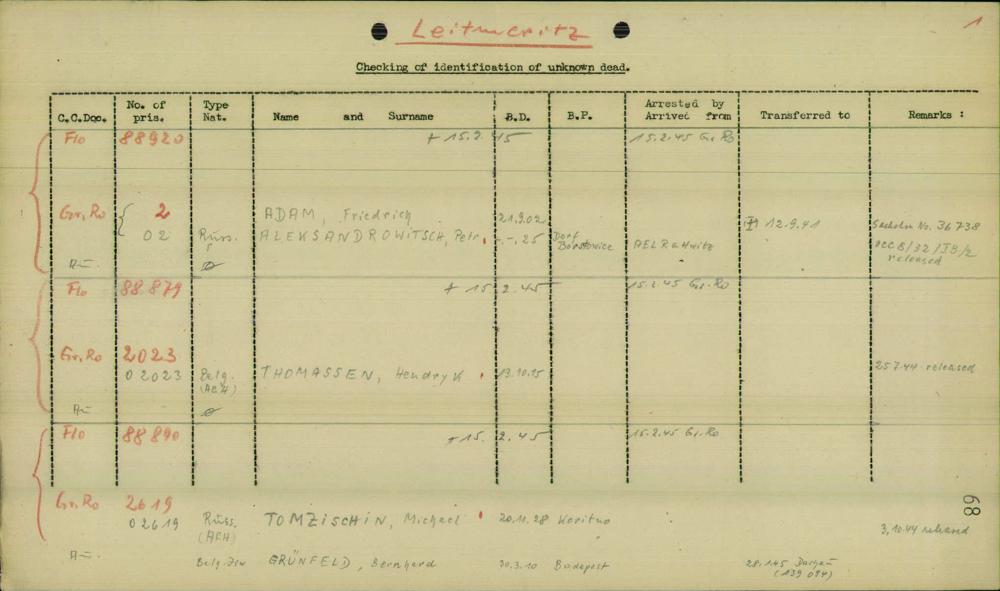 Leitmeritz
1
Checking of identification of unknown dead.
C.C.Doc. No. of pris. Type Nat. Name and Surname B.D. B.P. Arrested by Arrived from Transferred to Remarks :
Flo 88920 + 15.2.45 15.2.45 Gr.Ro
Gr.Ro 2 ADAM, Friedrich 21.9.02 12.9.41 No. 36738
02 Russ. ALEKSANDROWITSCH, Petr. -.-.25 Dorf AEL Rattwitz OCC8/32/IB/2
Au released
Flo 88879 + 15.2.45 15.2.45 Gr.Ro
Gr.Ro 2023
02023 Belg. (AEH) THOMASSEN, Hendryk 19.10.15 25.7.44 released
Au
Flo 88890 + 15.2.45 15.2.45 Gr.Ro
Gr.Ro 2619
02619 Russ. (AEH) TOMZISCHIN, Michael 20.11.28 3.10.44 released
Au Belg. Jew GRÜNFELD, Bernhard 30.3.10 Budapest 28.1.45 Dachau
(139 094)
68